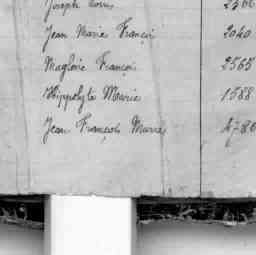 Joseph Louis 2566
Jean Marie François 2040
Magloire François 2565
Hippolyte Marie 1588
Jean François Marie